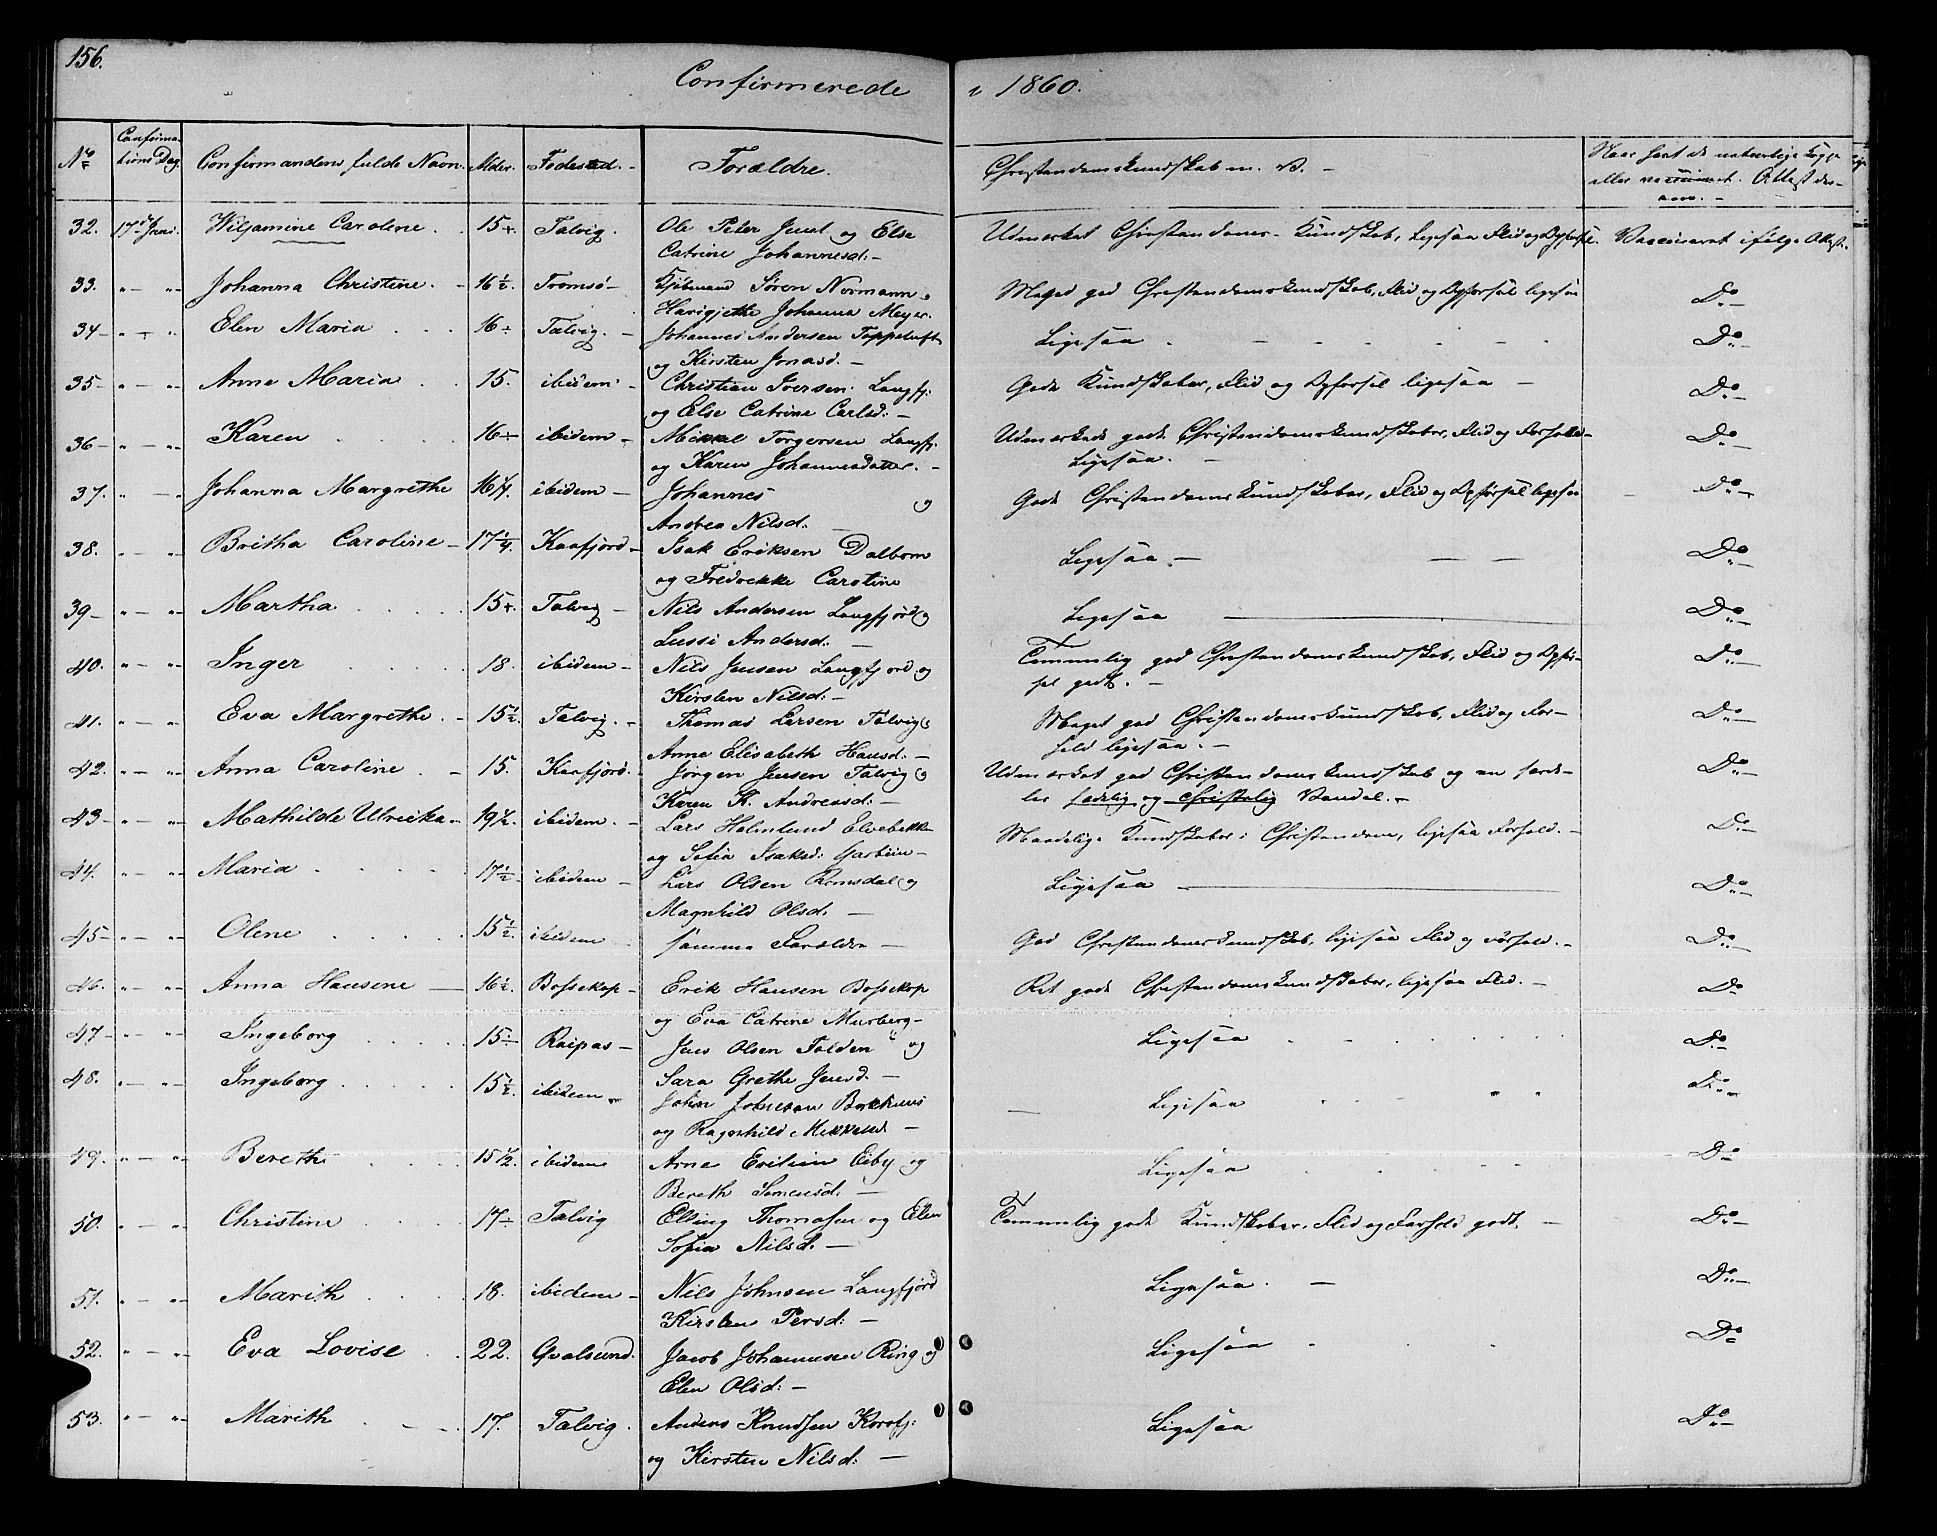 156.
Confirmerede i 1860.
No Confirmations Dag. Confirmandens fulde Navn. Alder. Fødested. Forældre. Christendomskundskab m. V. Naar havt de naturlige Kopper eller vaccineret. Attest derom.
32. 17de Juni. Wiljamine Caroline 15 Talvig. Ole Peter Juul og Else Udmærket Christendoms-Kundskab, ligesaa Flid og Opførsel. Vaccineret ifølge Attest.
Catrine Johannesd:
33. " " Johanna Christine. 16½. Tromsø Kjøbmand Søren Normann Meget god Christendomskundskab, Flid og Opførsel ligesaa Do
Johanna Meyer.
34 " " Elen Maria 16 Talvig. Johannes Andersen Toppeluft Ligesaa Do
og Kirsten Jonasd.
35 " " Anne Maria 15. ibidem Christian Iversen Langfj: Gode Kundskaber, Flid og Opførsel ligesaa Do
og Else Catrine Carlsd:
36 " " Karen 16 ibidem Mikkel Torgersen Langfj. Udmærkede gode Christendomskundskaber, Flid og Forhold Do
og Karen Johannesdatter. Ligesaa.
37. " " Johanna Margrethe 16¼ ibidem Johannes og Gode Christendomskundskaber, Flid og Opførsel ligesaa Do
Andrea Nilsd:
38. " " Britha Caroline 17¼. Kaafjord Isak Eriksen Dalbom Ligesaa. Do
og Fredrekke Carotine
39 " " Martha 15 Talvig Nils Andersen Langfjord og Ligesaa Do
Lussi Andersd:
40. " " Inger 18. ibidem Nils Jensen Langfjord og Temmelig god Christendomskundskab, Flid og Opfør- Do
Kirsten Nilsd: sel godt.
41. " " Eva Margrethe. 15½ Talvig. Thomas Larsen Talvig og Meget god Christendomskundskab, Flid og For- Do
Anne Elisabeth Hansd: hold ligesaa.
42. " " Anna Caroline 15. Kaafjord. Jørgen Jensen Talvig og Udmærket god Christendomskundskab og en særde- Do
Karen K. Andreasd: les sædelig og christelig Vandel.
43 " " Mathilde Ulricka 19½. ibidem. Lars Holmlund Elvebakken Maadelige Kundskaber i Christendom, ligesaa Forhold. Do
og Sofia Isaksd:
44. " " Maria 17½ ibidem Lars Olsen Romsdal og Ligesaa Do
Magnhild Olsd:
45 " " Olene 15½. ibidem samme Forældre God Christendomskundskab, ligesaa Flid og Forhold. Do
46. " " Anna Hansine 16½. Bossekop Erik Hansen Bossekop Ret gode Christendomskundskaber, ligesaa Flid. Do
og Eva Catrine Murberg
47 " " Ingeborg 15 Raipas Jens Olsen Folden og Ligesaa Do
Sara Grethe Jensd.
48. " " Ingeborg 15½ ibidem John Johnsen Ligesaa Do
og Ragnhild Mikkelsd
49. " " Bereth 15½. ibidem Arne Eiby og Ligesaa Do
Bereth Simensd.
50. " " Christine 17 Talvig Elling Thomasen og Elen Temmelig gode Kundskaber, Flid og Forhold godt. Do
Sofia Nilsd.
51. " " Marith 18. ibidem Nils Johnsen Langfjord Ligesaa. Do
Kirsten Persd:
52. " " Eva Lovise 22. Qvalsund. Jacob Johannesen Ring og Ligesaa Do
Elen Olsd:
53. " " Marith 17. Talvig. Anders Knudsen Korsfj: Ligesaa Do
og Kirsten Nilsd: